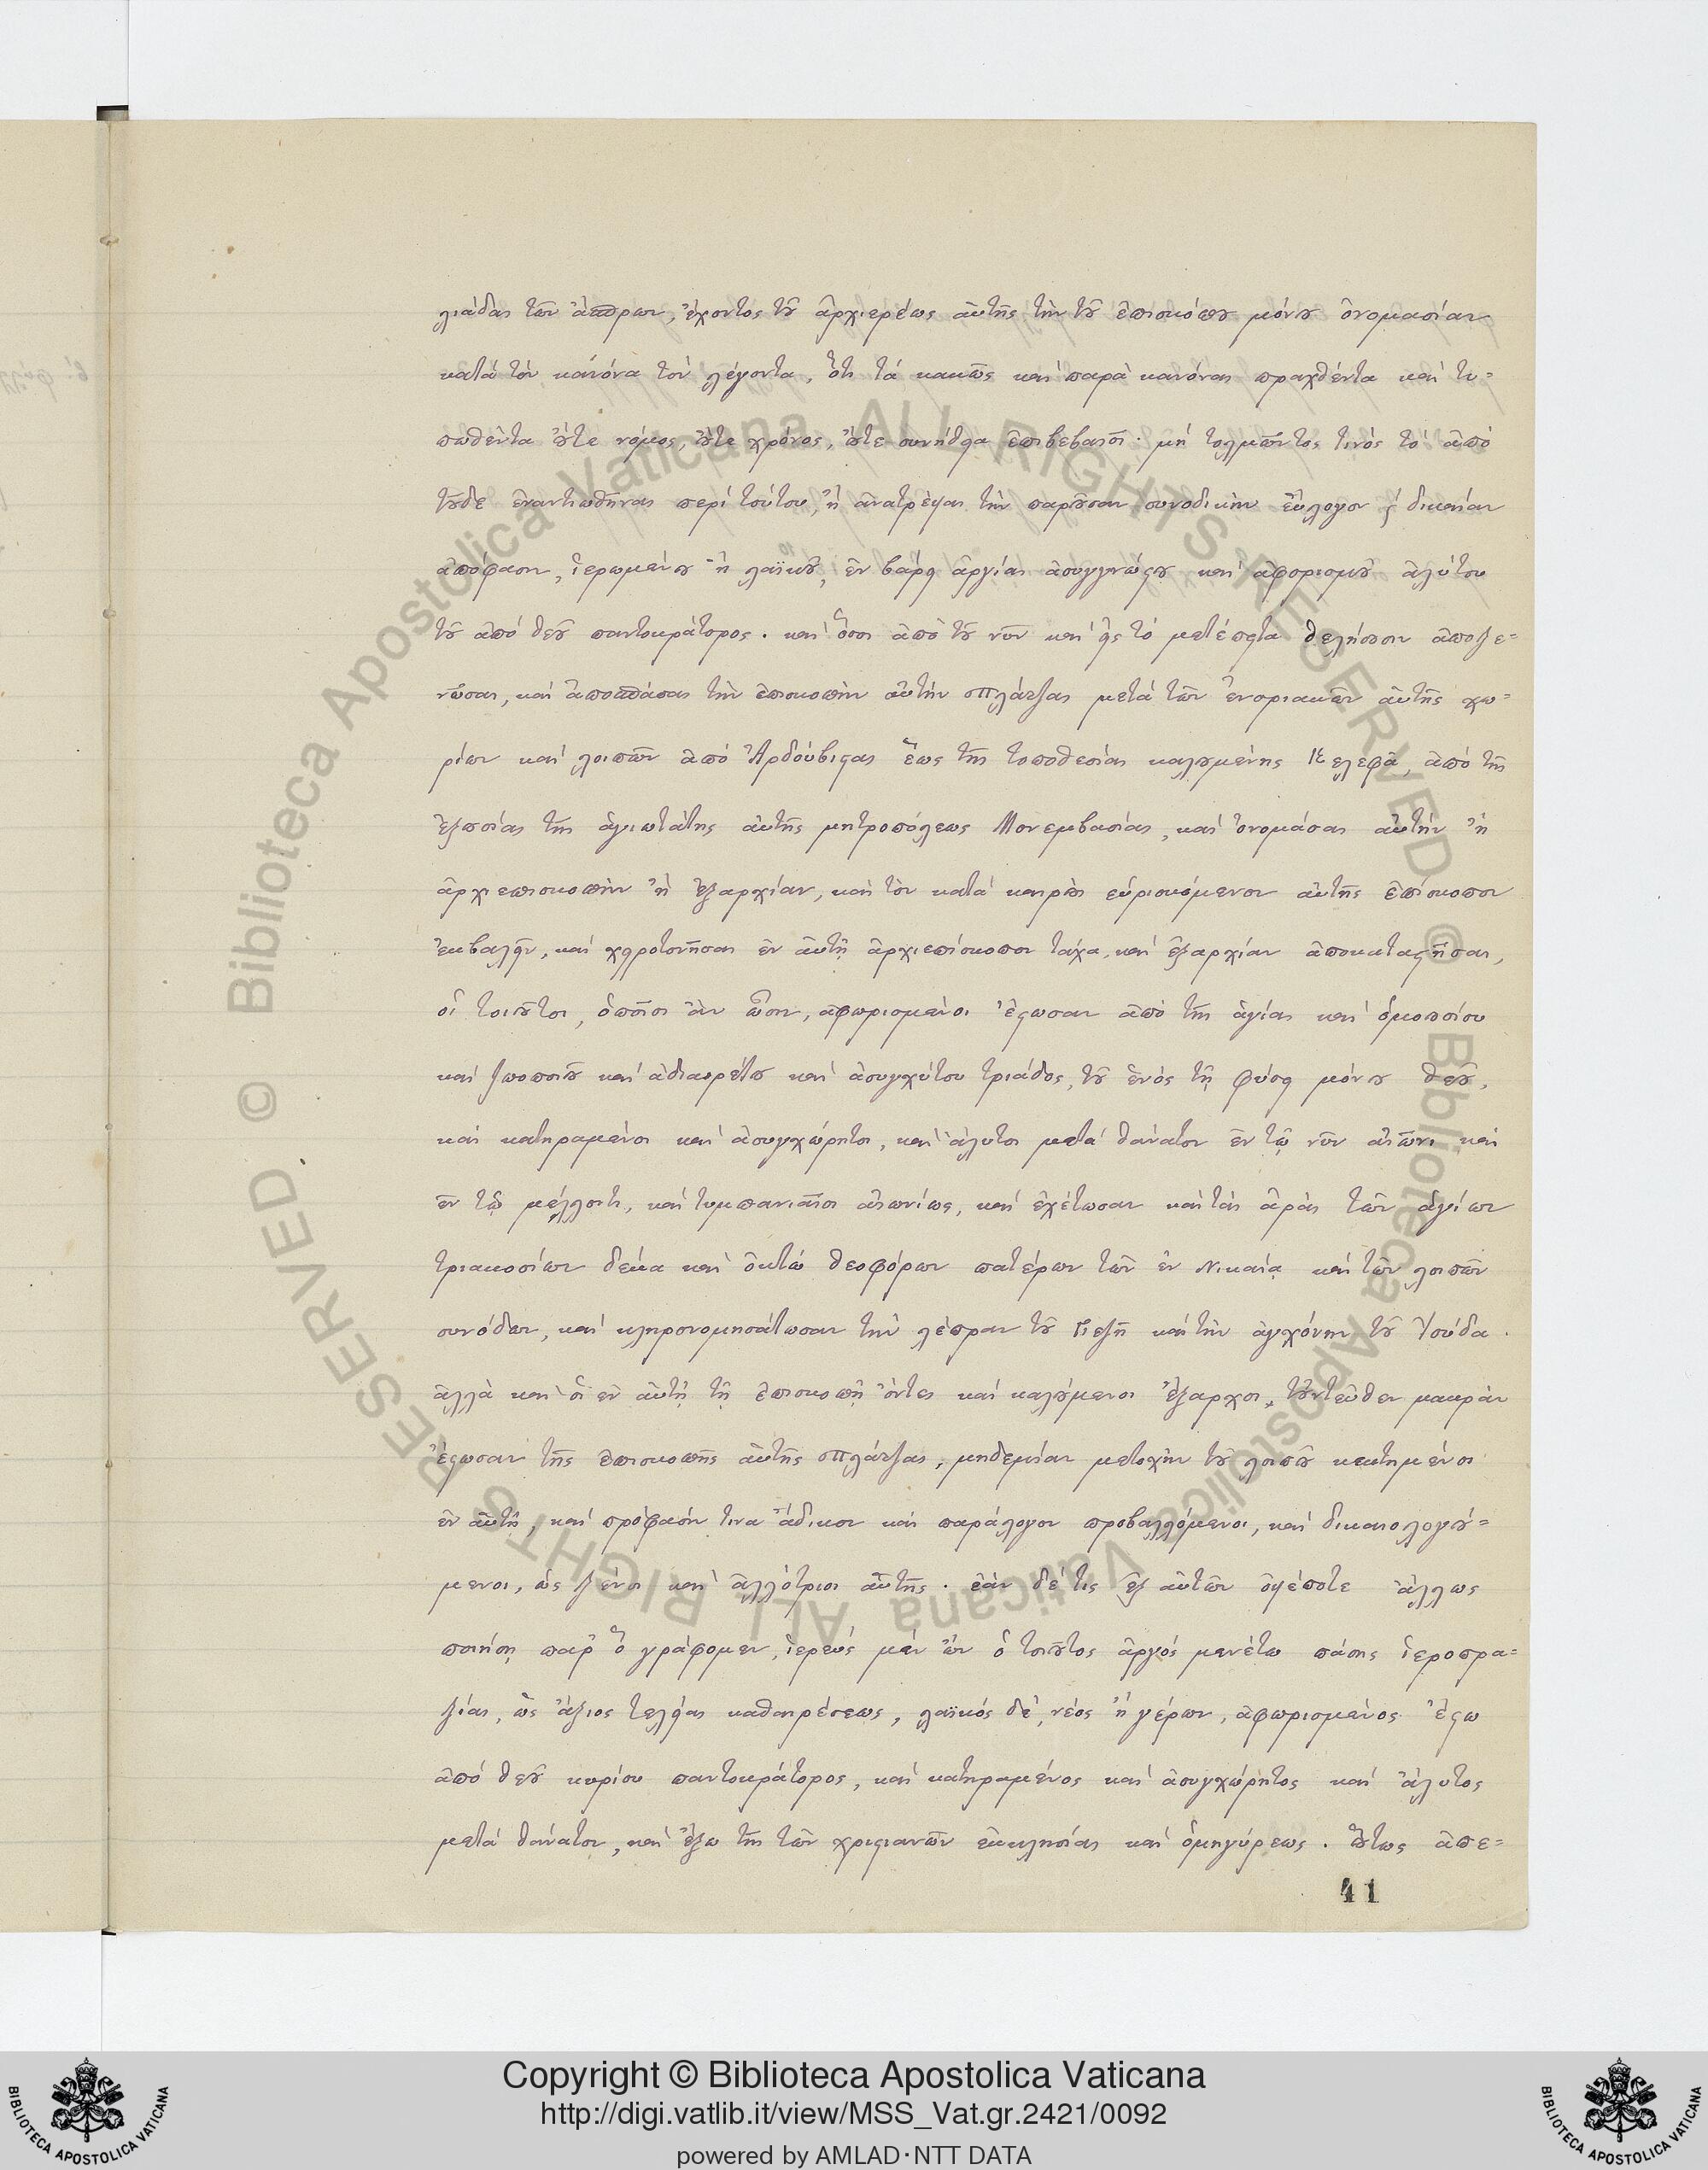 λιάδαι τῶν ἄσπρων, ἔχοντος τοῦ ἀρχιερέως αὐτῆς τὴν τοῦ ἐπισκόπου μόνου ὀνομασίαν
κατὰ τὸν κανόνα τὸν λέγοντα, ὅτι τὰ κακῶς καὶ παρὰ κανόνας πραχθέντα καὶ τυ=
πωθέντα οὔτε νόμος, οὔτε χρόνος, οὔτε συνήθεια ἐπιβεβαιοῖ· μὴ τολμῶντος τινὸς τὸ ἀπὸ
τοῦδε ἐναντιωθῆναι περὶ τούτου, ἢ ἀνατρέψαι τὴν παροῦσαν συνοδικὴν εὔλογον καὶ δικαίαν
ἀπόφασιν, ἱερωμένου ἢ λαϊκοῦ, ἐν βάρει ἀργίας ἀσυγγνώστου καὶ ἀφορισμοῦ ἀλύτου
τοῦ ἀπὸ θεοῦ παντοκράτορος. καὶ ὅσοι ἀπὸ τοῦ νῦν καὶ εἰς τὸ μετέπειτα θελήσουσιν ἀποξε=
νῶσαι, καὶ ἀποσπάσαι τὴν ἐπισκοπὴν αὐτὴν Πλάτζας μετὰ τῶν ἐνοριακῶν αὐτῆς χω=
ρίων καὶ λοιπῶν ἀπὸ Ἀρδούβιστας ἕως τῆς τοποθεσίας καλουμένης Κελεφᾶ, ἀπὸ τῆς
ἐξουσίας τῆς ἁγιωτάτης αὐτῆς μητροπόλεως Μονεμβασίας, καὶ ὀνομάσαι αὐτὴν ἢ
ἀρχιεπισκοπὴν ἢ ἐξαρχίαν, καὶ τὸν κατὰ καιροὺς εὑρισκόμενον αὐτῆς ἐπίσκοπον
ἐκβαλεῖν, καὶ χειροτονῆσαι ἐν αὐτῇ ἀρχιεπίσκοπον τάχα, καὶ ἐξαρχίαν ἀποκαταστῆσαι,
οἱ τοιοῦτοι, ὁποῖοι ἂν ὦσιν, ἀφωρισμένοι ἔστωσαν ἀπὸ τῆς ἁγίας καὶ ὁμοουσίου
καὶ ζωοποιοῦ καὶ ἀδιαιρέτου καὶ ἀσυγχύτου τριάδος, τοῦ ἑνὸς τῇ φύσει μόνου θεοῦ,
καὶ κατηραμένοι καὶ ἀσυγχώρητοι, καὶ ἄλυτοι μετὰ θάνατον ἐν τῷ νῦν αἰῶνι καὶ
ἐν τῷ μέλλοντι, καὶ τυμπανιαῖοι αἰωνίως, καὶ ἐχέτωσαν καὶ τὰς ἀρὰς τῶν ἁγίων
τριακοσίων δέκα καὶ ὀκτὼ θεοφόρων πατέρων τῶν ἐν Νικαίᾳ καὶ τῶν λοιπῶν
συνόδων, καὶ κληρονομησάτωσαν τὴν λέπραν τοῦ Γιεζῆ καὶ τὴν ἀγχόνην τοῦ Ἰούδα.
ἀλλὰ καὶ οἱ ἐν αὐτῇ τῇ ἐπισκοπῇ ὄντες καὶ καλούμενοι ἔξαρχοι, τοὐντεῦθεν μακρὰν
ἔστωσαν τῆς ἐπισκοπῆς αὐτῆς Πλάτζας, μηδεμίαν μετοχὴν τοῦ λοιποῦ κεκτημένοι
ἐν αὐτῇ, καὶ πρόφασίν τινα ἄδικον καὶ παράλογον προβαλλόμενοι, καὶ δικαιολογού=
μενοι, ὡς ξένοι καὶ ἀλλότριοι αὐτῆς. ἐὰν δέ τις ἐξ αὐτῶν ὀψέποτε ἄλλως
ποιήσῃ παρ' ὃ γράφομεν, ἱερεὺς μὲν ὢν ὁ τοιοῦτος ἀργὸς μενέτω πάσης ἱεροπρα=
ξίας, ὡς ἄξιος τελείας καθαιρέσεως, λαϊκὸς δὲ, νέος ἢ γέρων, ἀφωρισμένος ἔστω
ἀπὸ θεοῦ κυρίου παντοκράτορος, καὶ κατηραμένος καὶ ἀσυγχώρητος καὶ ἄλυτος
μετὰ θάνατον, καὶ ἔξω τῆς τῶν χριστιανῶν ἐκκλησίας καὶ ὁμηγύρεως. οὕτως ἀπε=
41
Biblioteca Apostolica Vaticana ALL RIGHTS RESERVED © Biblioteca Apostolica Vaticana ALL RIGHTS RESERVED ©
Copyright © Biblioteca Apostolica Vaticana
http://digi.vatlib.it/view/MSS_Vat.gr.2421/0092
powered by AMLAD·NTT DATA
BIBLIOTECA APOSTOLICA VATICANA
BIBLIOTECA APOSTOLICA VATICANA